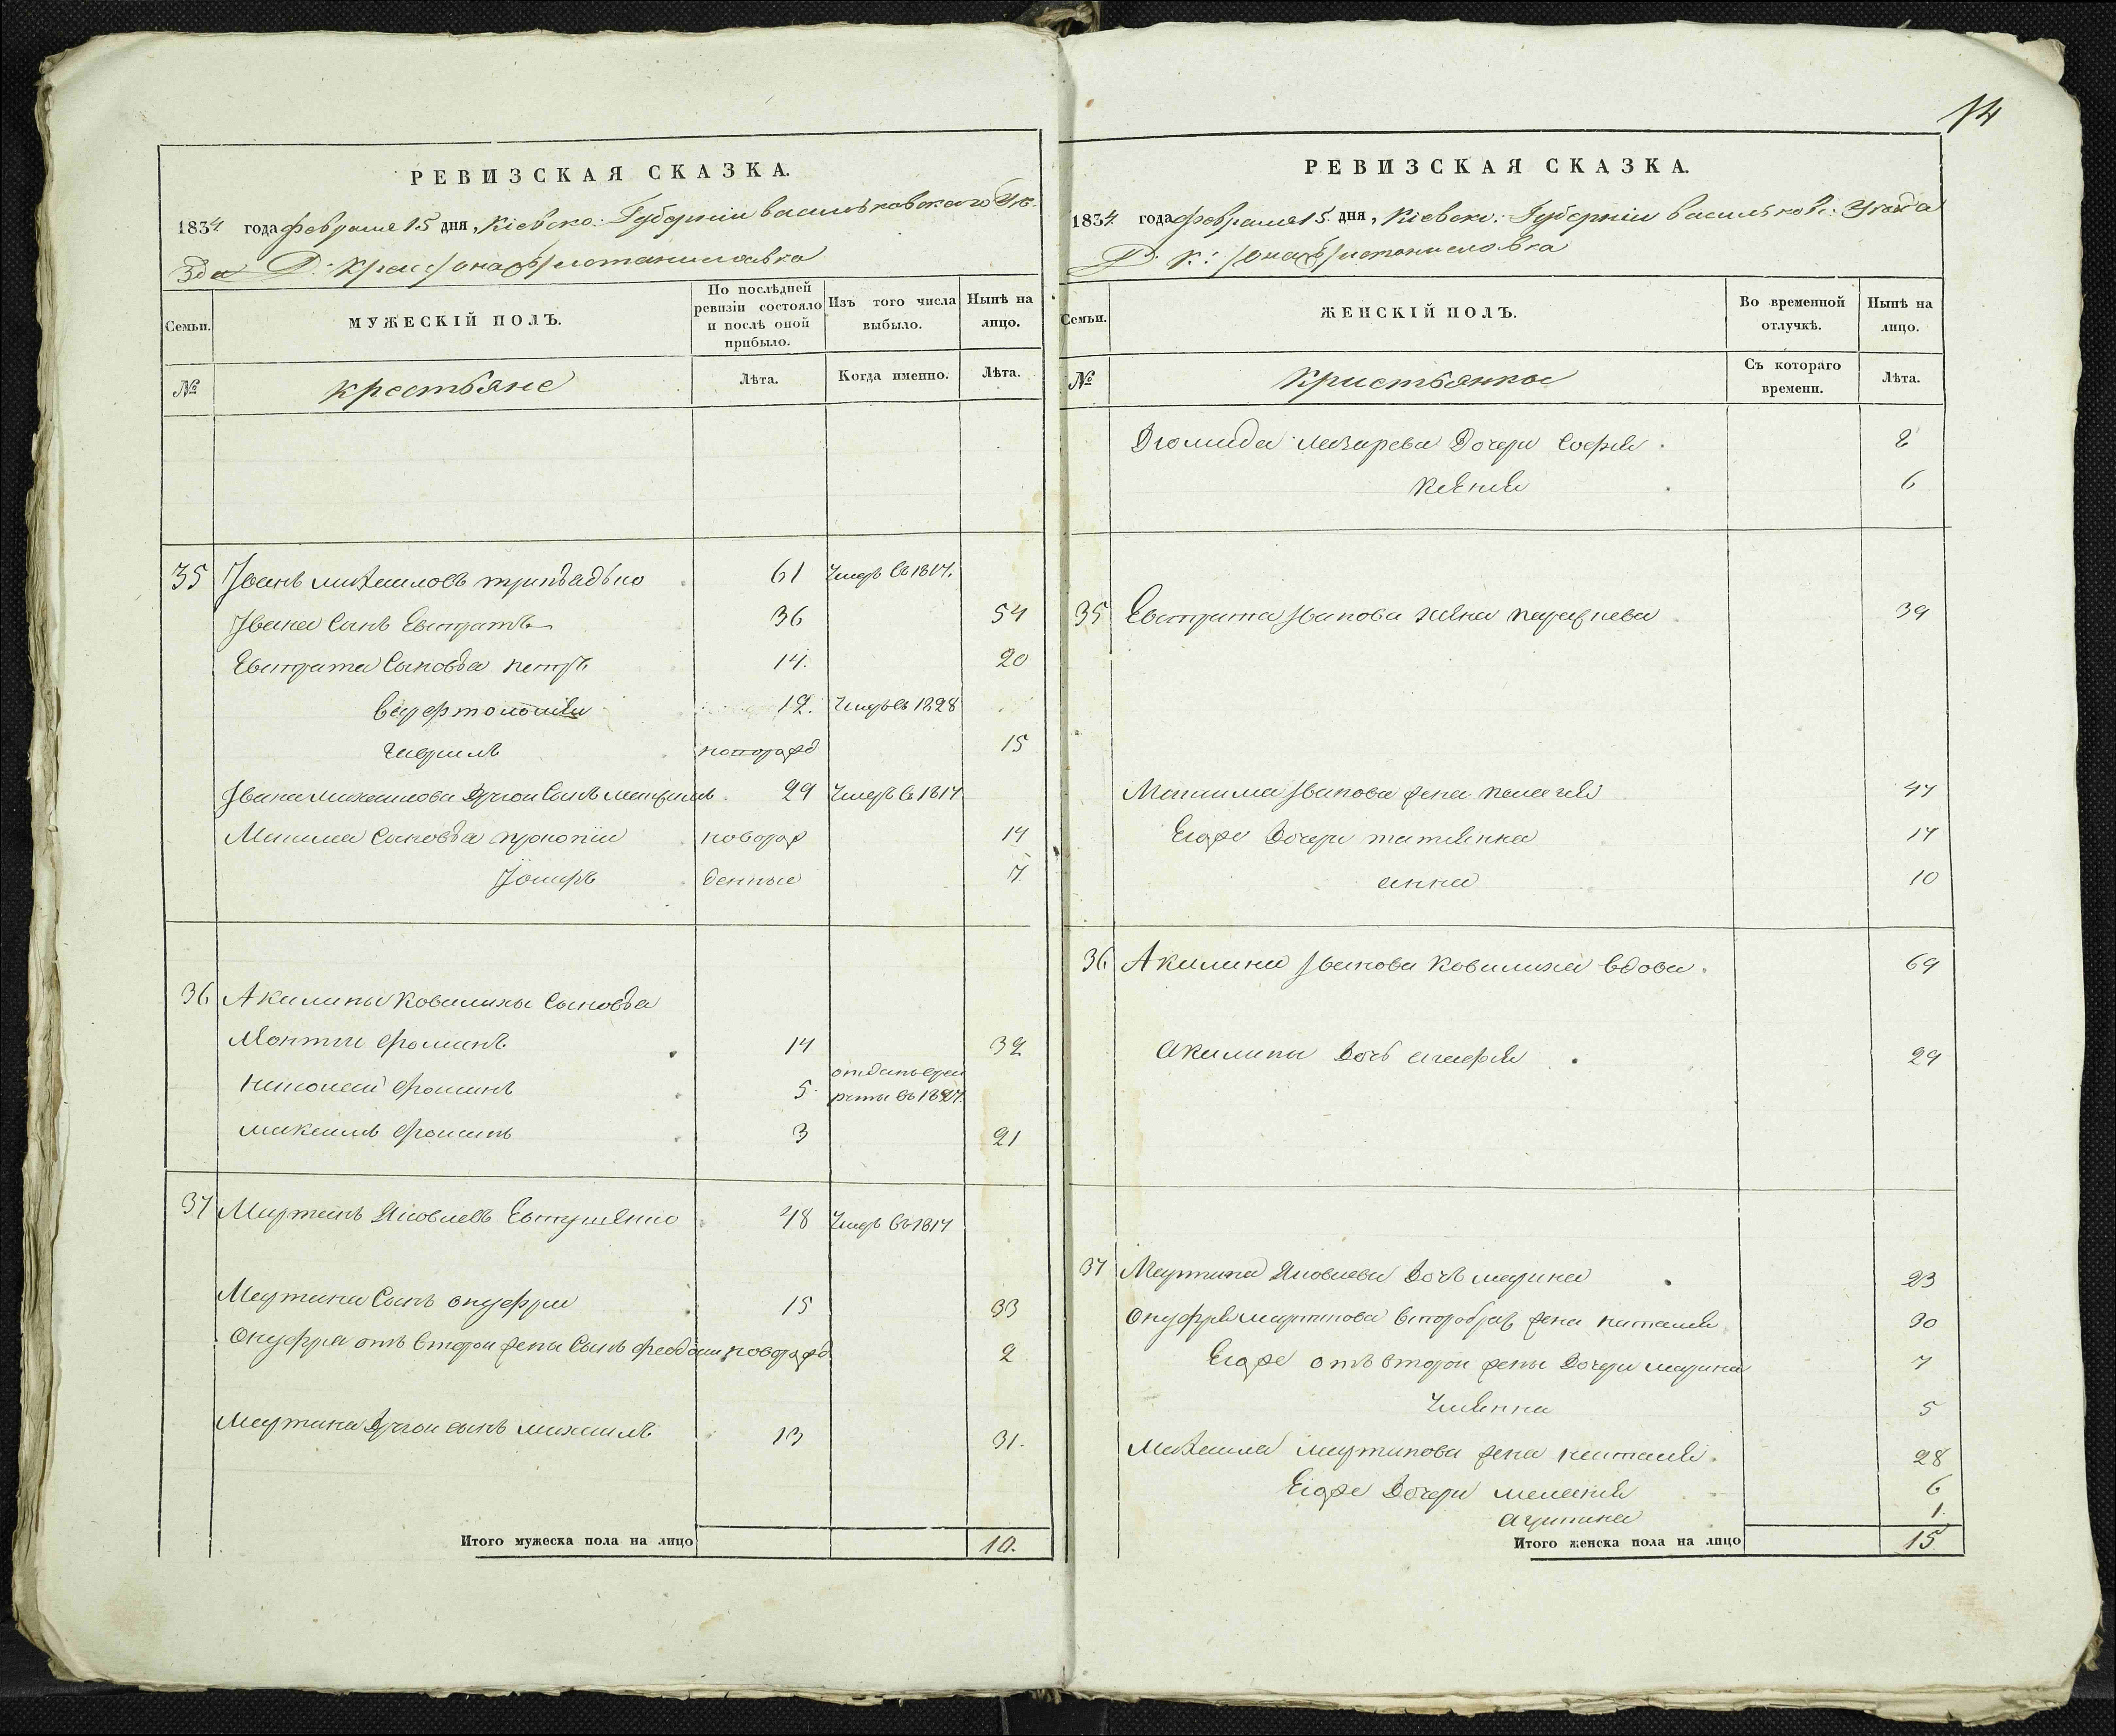 14
РЕВИЗСКАЯ СКАЗКА.
1834 года февраля 15 дня, Кіевско: Губерніи васильковского Уѣ-
зда Д:
МУЖЕСКІЙ ПОЛЪ.
Семьи.
По послѣдней ревизіи состояло и послѣ оной прибыло.
Изъ того числа выбыло.
Нынѣ на лицо.
№
крестьяне
Лѣта.
Когда именно.
Лѣта.
35 Іванъ михаиловъ 61 Умеръ въ 1817.
Івана Сынъ Евстратъ 36 54
Евстрата Сыновъя петръ 14. 20
варфтоломѣи 12. Умеръ въ 1828
гаврилъ новорожд 15
Івана михаилова другои Сынъ максимъ 29 Умеръ въ 1817
Максима Сыновъя прокопіи новорож 14
денные 7
36 Акилины Ковалихи Сыновъя
фоминъ 14 32
николаи фоминъ 5 отданъ в рек
руты въ 1827.
максимъ фоминъ 3 21
37 Мартинъ Яковлевъ Евтушенко 48 Умеръ въ 1817
Мартина Сынъ онуфри 15 33
Онуфрия отъ второи жены Сынъ феодоси новорожд 2
Мартина другои сынъ михаилъ 13 31.
Итого мужеска пола на лицо 10.
РЕВИЗСКАЯ СКАЗКА.
1834 года февраля 15 дня, Кіевско: Губерніи васильковс: Уѣзда
Д. К:
Семьи.
ЖЕНСКІЙ ПОЛЪ.
Во временной отлучкѣ.
Нынѣ на лицо.
№
Кристьянки
Съ котораго времени.
Лѣта.
Диомида лазарева Дочери София 8
Ксения 6
35 Евстрата Іванова жена 39
Максима Іванова жена пелагия 47
Егоже Дочери татияна 17
анна 10
36 Акилина Іванова Ковалиха вдова. 69
Акилины Дочь агафия 29
37 Мартина Яковлева Дочъ марина 23
Онуфрия мартинова второбрач жена наталия 30
Егоже отъ второи жены Дочери марина 7
Улияна 5
Михаила мартинова жена наталия. 28
Егоже Дочери мелания 6
агрипина 1.
Итого женска пола на лицо 15